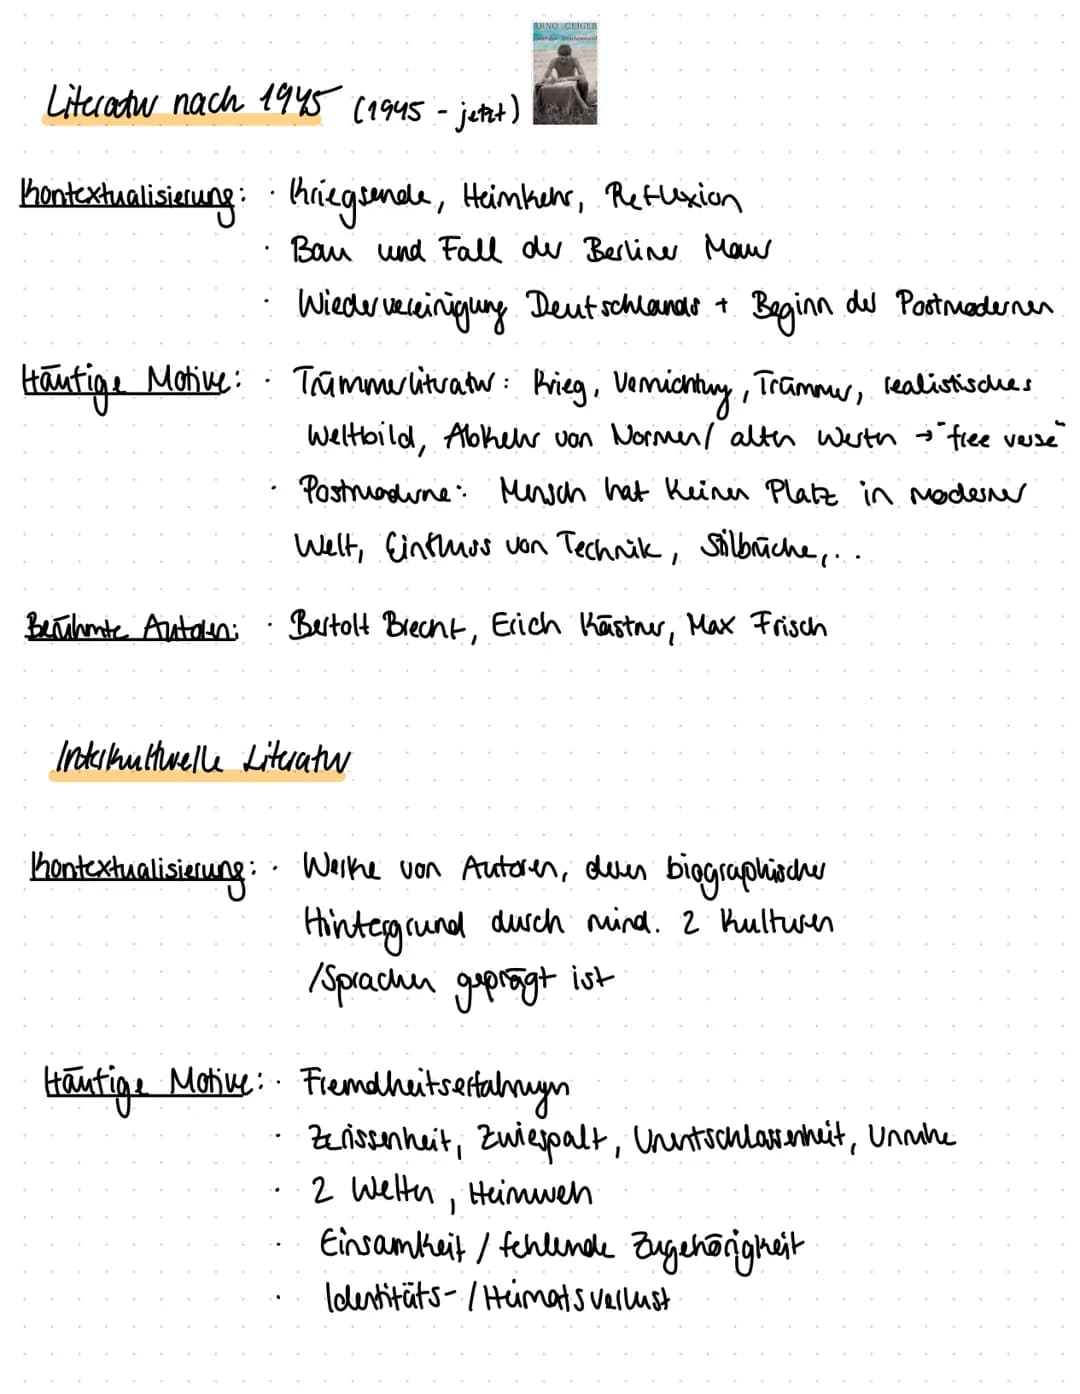 ARNO GEIGER
Unter der Drachenwand
Literatur nach 1945 (1945 - jetzt)
Kontextualisierung: · Kriegsende, Heimkehr, Reflexion
· Bau und Fall der Berliner Mauer
· Wiedervereinigung Deutschlands + Beginn des Postmodernen
Häufige Motive: · Trümmerliteratur: Krieg, Vernichtung, Trümmer, realistisches
Weltbild, Abkehr von Normen/ alten Werten → "free verse"
· Postmoderne: Mensch hat keinen Platz in moderner
Welt, Einfluss von Technik, Stilbrüche,...
Berühmte Autoren: · Bertolt Brecht, Erich Kästner, Max Frisch
Interkulturelle Literatur
Kontextualisierung: · Werke von Autoren, deren biographischer
Hintergrund durch mind. 2 Kulturen
/Sprachen geprägt ist
Häufige Motive: · Fremdheitserfahrungen
· Zerissenheit, Zwiespalt, Unentschlossenheit, Unruhe
· 2 Welten, Heimweh
· Einsamkeit / fehlende Zugehörigkeit
· Identitäts- / Heimatsverlust